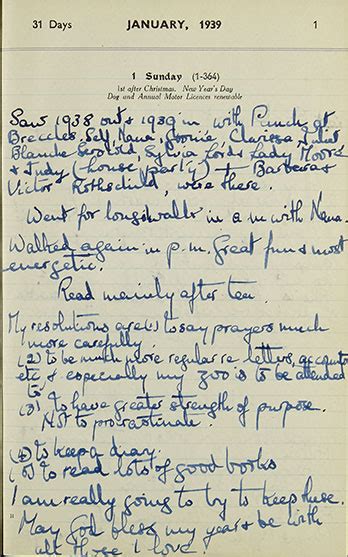 31 Days JANUARY, 1939 1
1 Sunday (1-364)
1st after Christmas. New Year's Day
Dog and Annual Motor Licences renewable
Saw 1938 out & 1939 in with Punch at
Breccles, Self, Nana, Clarissa, Juliet
Blanche Sylvia Lord & Lady Moore
& Judy (house party) + Barbara &
Victor Rothschild, were there.
Went for long walk in a.m with Nana.
Walked again in p.m. Great fun & most
energetic.
Read mainly after tea.
My resolutions are (1) to say prayers much
more carefully
(2) to be much more regular re. letters, accounts
etc & especially my zoo is to be attended
to
(3) to have greater strength of purpose.
Not to procrastinate.
(4) to keep a diary.
(5) to read lots of good books
I am really going to try to keep these.
May God bless my year & be with
all those I love.